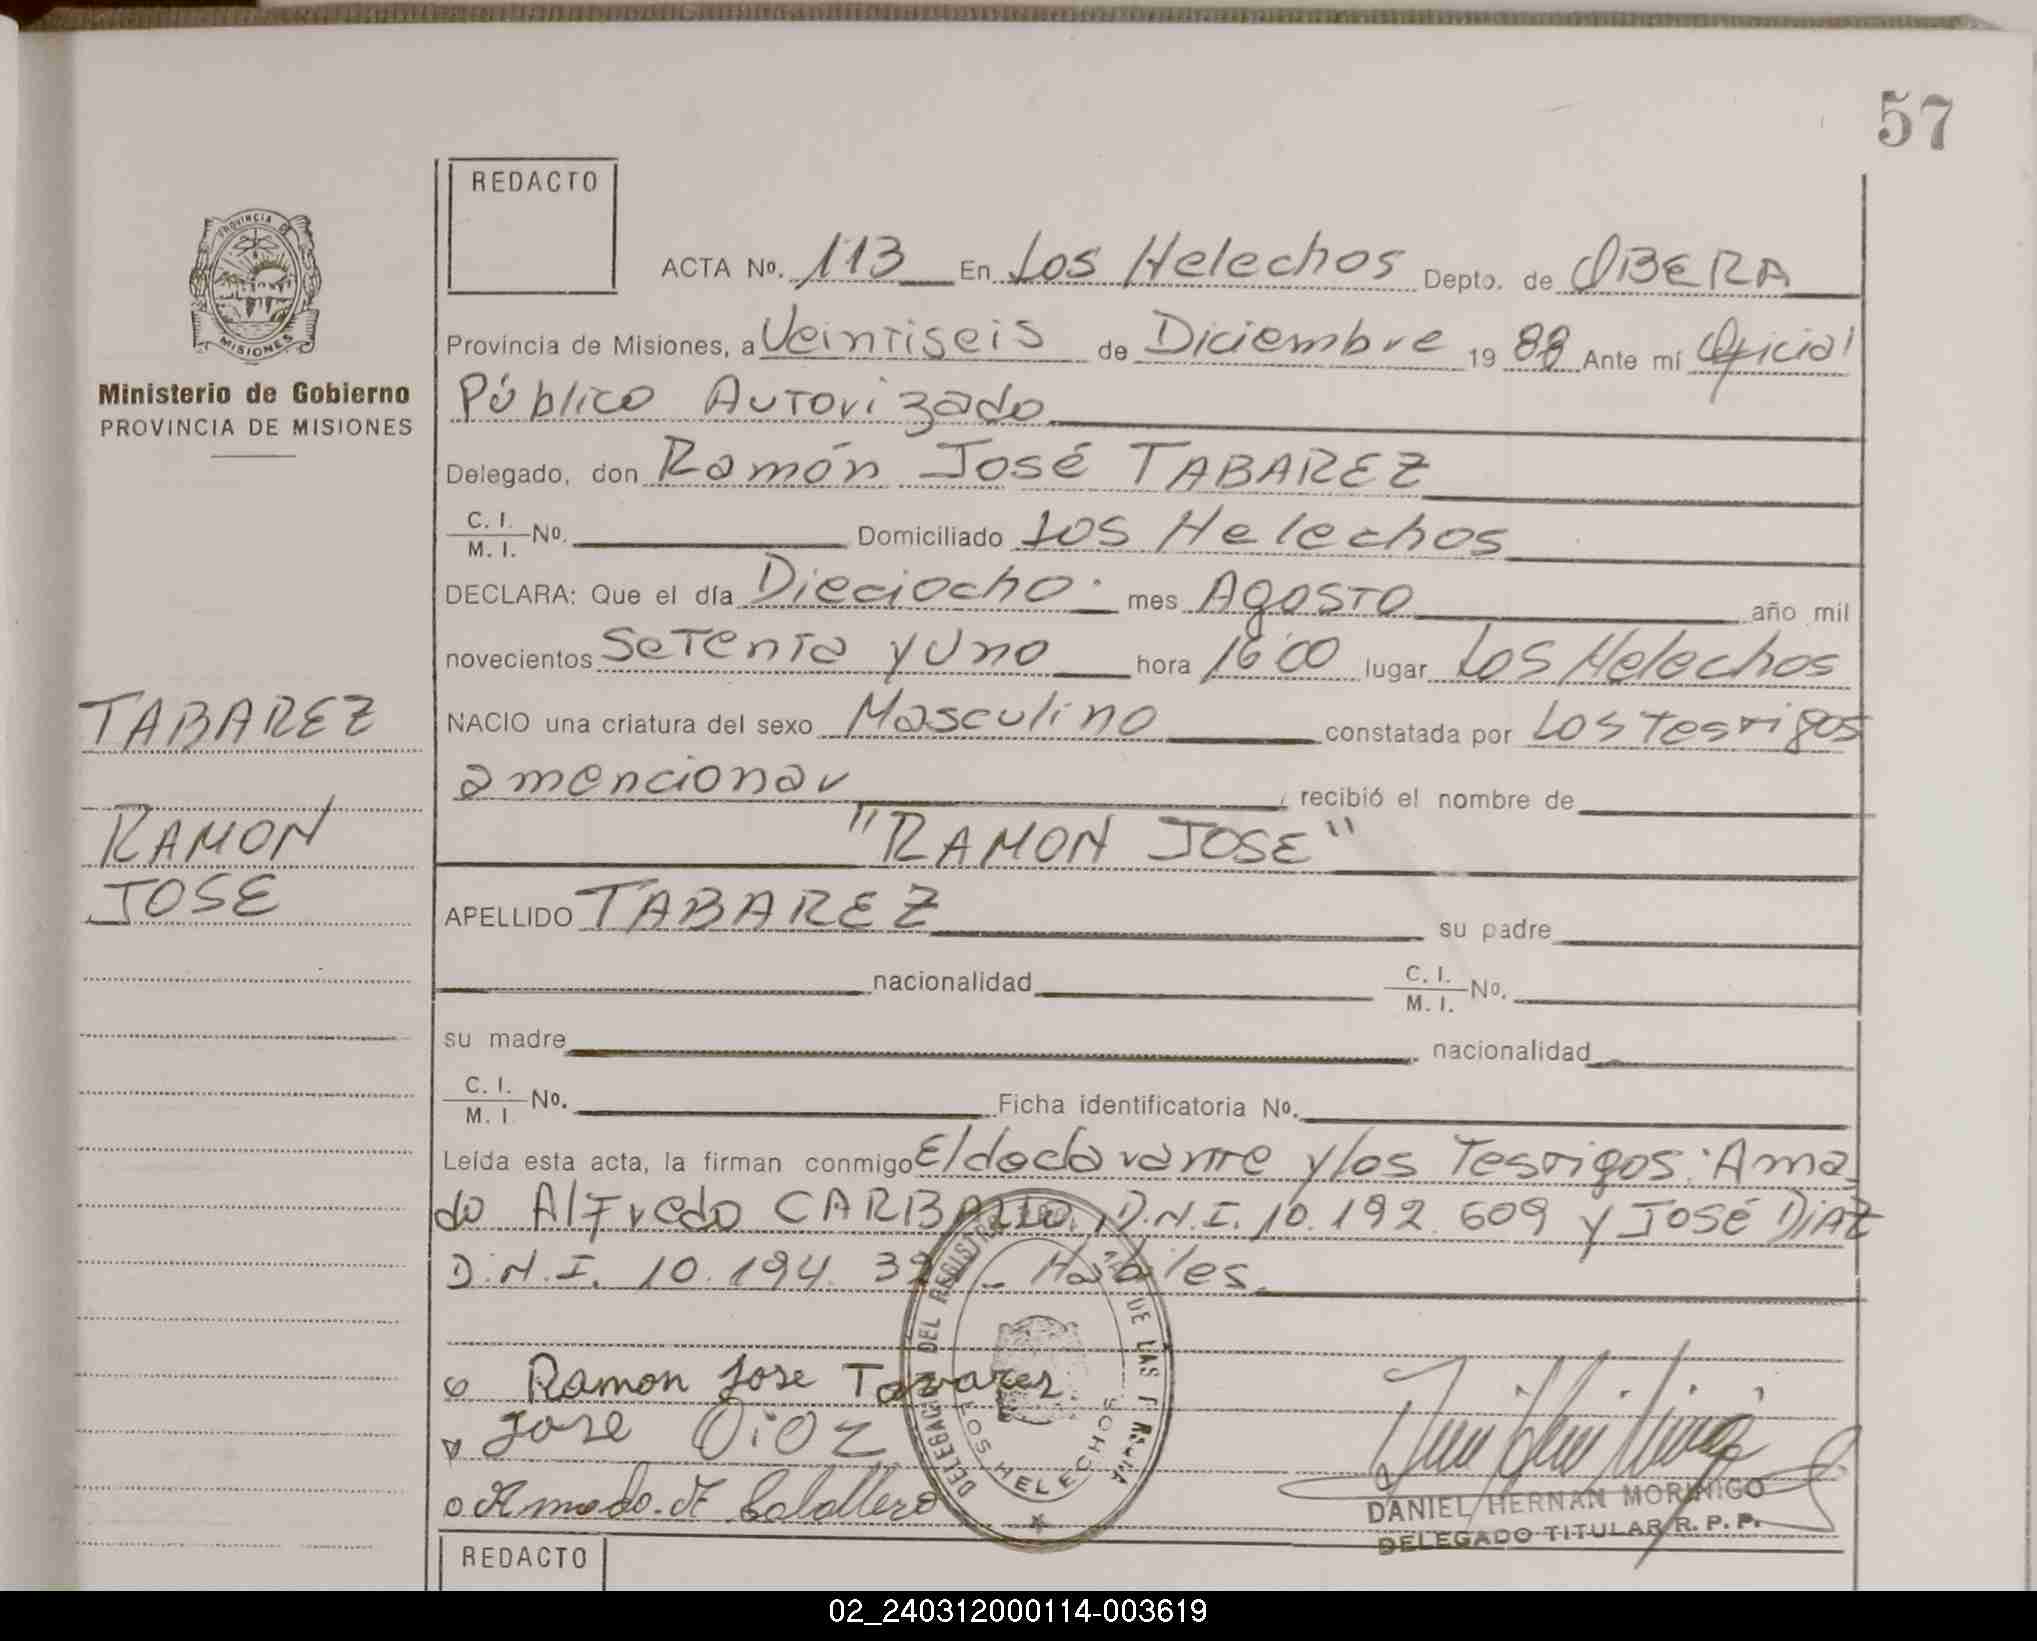 57
REDACTO
ACTA No. 113 En Los Helechos Depto. de OBERA
PROVINCIA DE
MISIONES
Provincia de Misiones, a Veintiseis de Diciembre 19 88 Ante mí Oficial
Ministerio de Gobierno
PROVINCIA DE MISIONES
Público Autorizado
Delegado, don Ramón José TABAREZ
C. I. / M. I. No. Domiciliado Los Helechos
DECLARA: Que el día Dieciocho mes Agosto año mil
novecientos Setenta y Uno hora 16 00 lugar Los Helechos
TABAREZ
NACIO una criatura del sexo Masculino constatada por Los Testigos
a mencionar recibió el nombre de
RAMON
JOSE
"RAMON JOSE"
APELLIDO TABAREZ su padre
nacionalidad C. I. / M. I. No.
su madre nacionalidad
C. I. / M. I. No. Ficha identificatoria No.
Leída esta acta, la firman conmigo El declarante y los Testigos: Ama
do Alfredo D.N.I. 10.192.609 y JOSÉ DIAZ
D.N.I. 10.194. Hábiles
Ramon Jose Tavarez
Jose Dioz
Amado. A
DELEGACION DEL REGISTRO DE LAS
LOS HELECHOS
DANIEL HERNAN MORINIGO
DELEGADO TITULAR R. P. P.
REDACTO
02_240312000114-003619